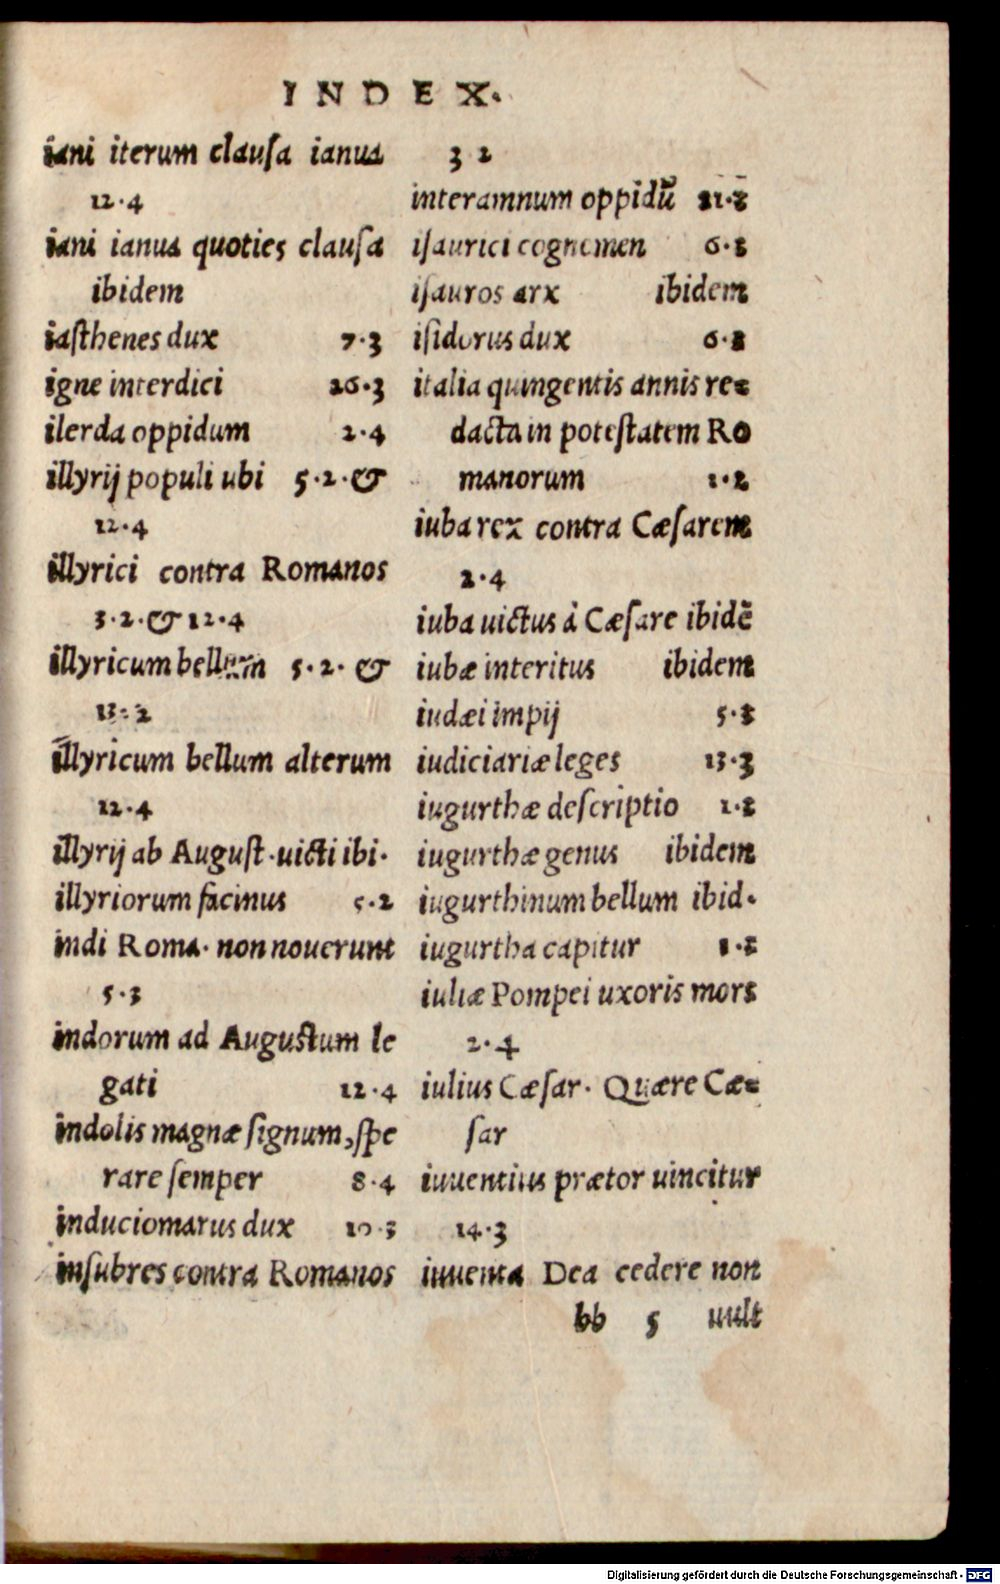 INDEX.
iani iterum clauſa ianua
12.4
iani ianua quoties clauſa
ibidem
iaſthenes dux 7.3
igne interdici 26.3
ilerda oppidum 2.4
illyrij populi ubi 5.2.&
12.4
illyrici contra Romanos
3.2.& 12.4
illyricum bellum 5.2. &
13.2
illyricum bellum alterum
12.4
illyrij ab Auguſt. uicti ibi.
illyriorum facinus 5.2
indi Roma. non nouerunt
5.3
indorum ad Auguſtum le
gati 12.4
indolis magnæ ſignum, ſpe
rare ſemper 8.4
induciomarus dux 10.3
inſubres contra Romanos
3 2
interamnum oppidũ 21.3
iſaurici cognomen 6.3
iſauros arx ibidem
iſidorus dux 6.3
italia quingentis annis re=
dacta in poteſtatem Ro
manorum 1.2
iuba rex contra Cæſarem
2.4
iuba uictus à Cæſare ibidẽ
iubæ interitus ibidem
iudæi impij 5.3
iudiciariæ leges 13.3
iugurthæ deſcriptio 1.3
iugurthæ genus ibidem
iugurthinum bellum ibid.
iugurtha capitur 1.3
iuliæ Pompei uxoris mors
2.4
iulius Cæſar. Quære Cæ=
ſar
iuuentius prætor uincitur
14.3
iuuenta Dea cedere non
bb 5 uult
Digitalisierung gefördert durch die Deutsche Forschungsgemeinschaft - DFG